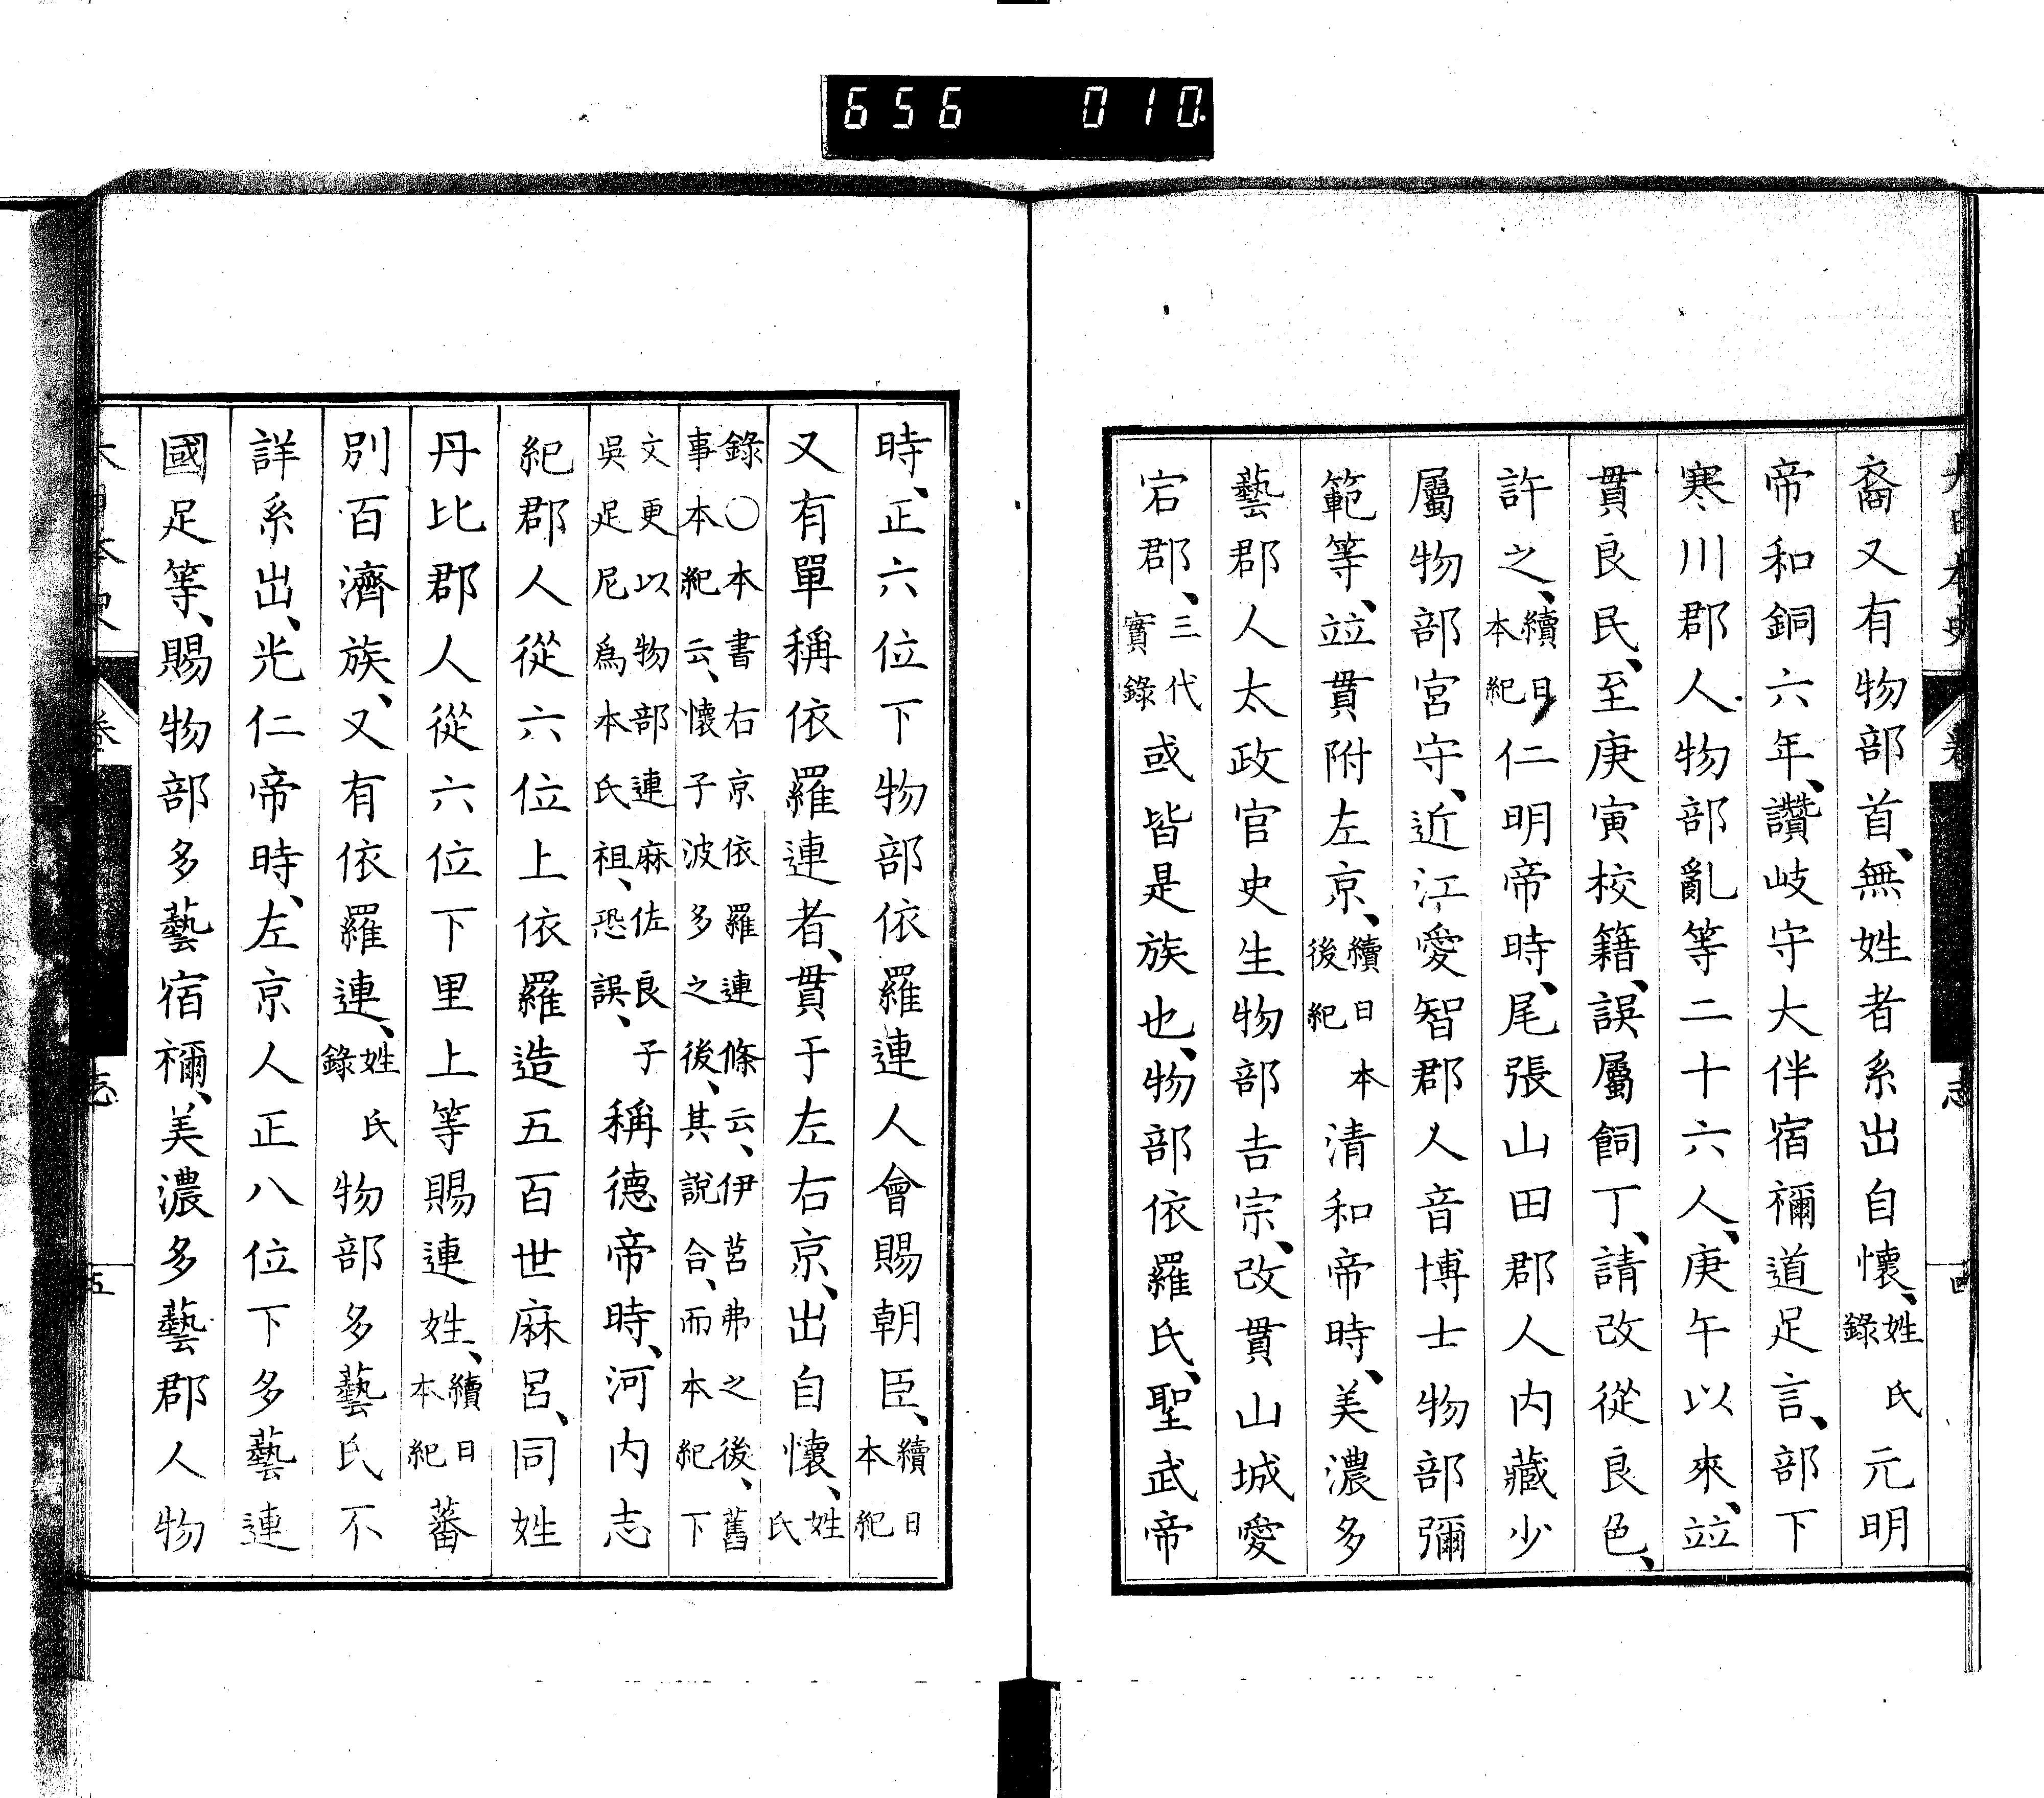 656 010
裔又有物部首、無姓者系出自懷、姓氏錄元明
帝和銅六年、讚岐守大伴宿禰道足言、部下
寒川郡人物部亂等二十六人、庚午以來、竝
貫良民、至庚寅校籍、誤屬飼丁、請改從良色、
許之、續日本紀仁明帝時、尾張山田郡人内藏少
屬物部宮守、近江愛智郡人音博士物部彌
範等、竝貫附左京、續日本後紀清和帝時、美濃多
藝郡人太政官史生物部吉宗、改貫山城愛
宕郡、三代實錄或皆是族也、物部依羅氏、聖武帝
時、正六位下物部依羅連人會賜朝臣、續日本紀
又有單稱依羅連者、貫于左右京、出自懷、姓氏
錄〇本書右京依羅連條云、伊莒弗之後、舊
事本紀云、懷子波多之後、其說合、而本紀下
文更以物部連麻佐良子
吳足尼爲本氏祖、恐誤、稱德帝時、河内志
紀郡人從六位上依羅造五百世麻呂、同姓
丹比郡人從六位下里上等賜連姓、續日本紀蕃
別百濟族、又有依羅連、姓氏錄物部多藝氏不
詳系出、光仁帝時、左京人正八位下多藝連
國足等、賜物部多藝宿禰、美濃多藝郡人物
志
五